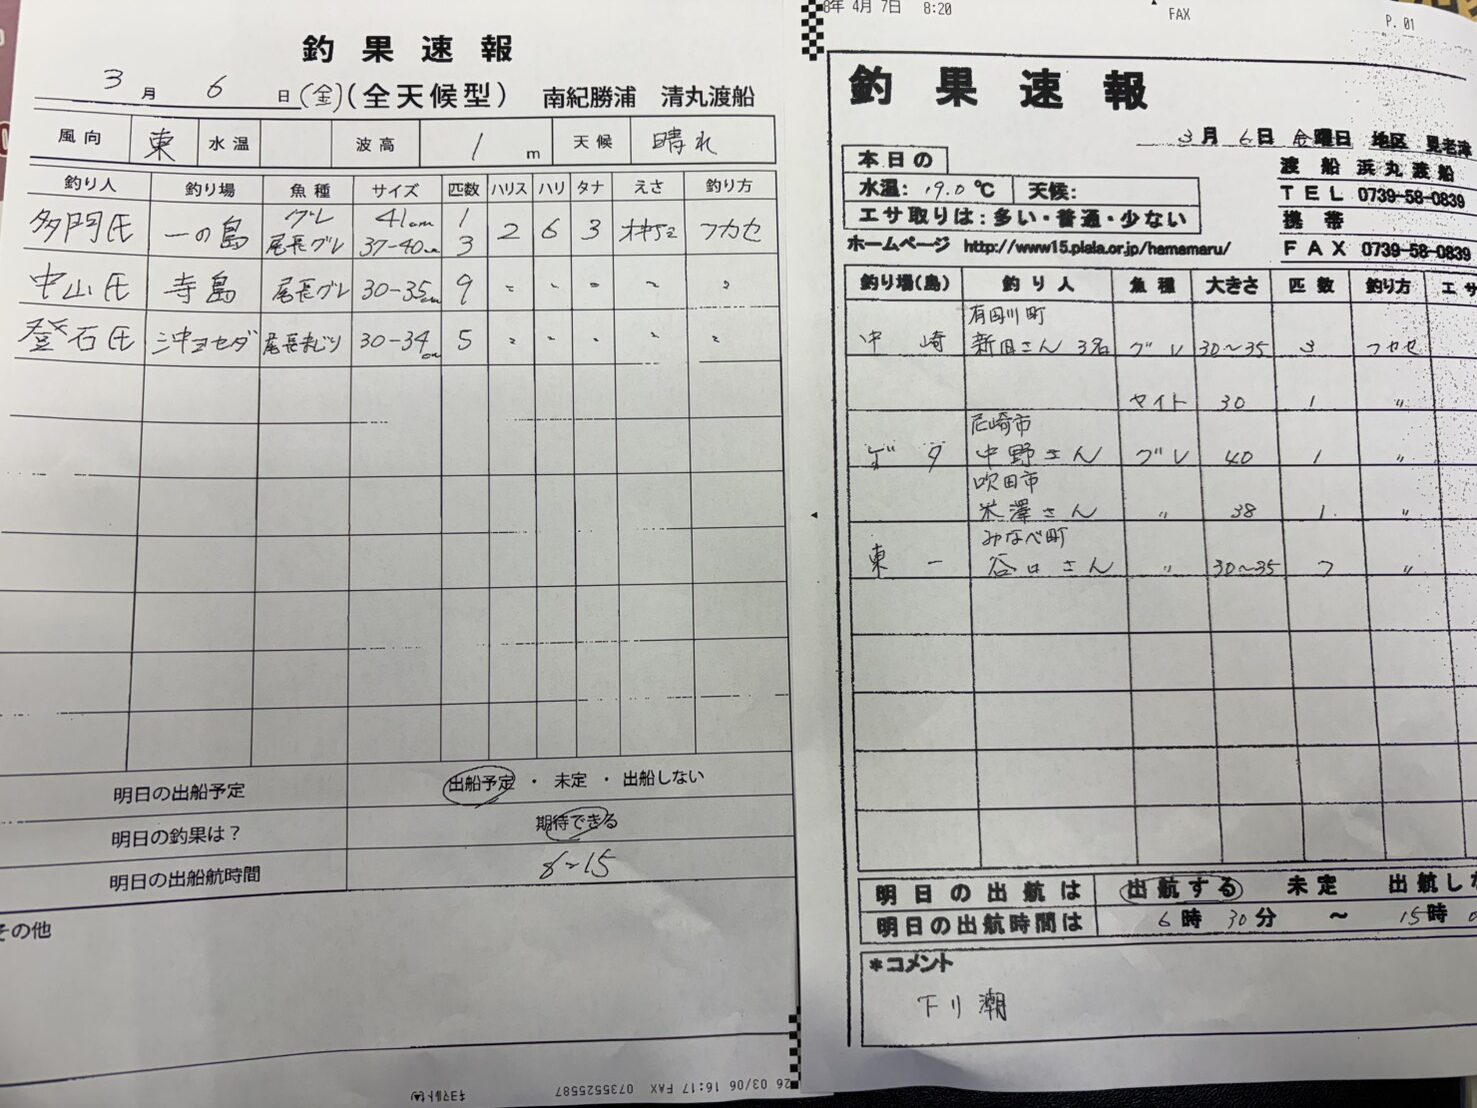 釣果速報
3月 6日(金)(全天候型) 南紀勝浦 清丸渡船
風向 東 水温 波高 1 m 天候 晴れ
釣り人 釣り場 魚種 サイズ 匹数 ハリス ハリ タナ えさ 釣り方
多門氏 一の島 グレ 41cm 1
尾長グレ 37-40cm 3 2 6 3 オキアミ フカセ
中山氏 寺島 尾長グレ 30-35cm 9 〃 〃 〃 〃 〃
登石氏 沖ヨセダ 尾長まじり 30-34cm 5 〃 〃 〃 〃 〃
明日の出船予定 出船予定 ・ 未定 ・ 出船しない
明日の釣果は? 期待できる
明日の出船航時間 6~15
その他
26 03/06 16:17 FAX 0735525587 キヨマルト(A)
8年 4月 7日 8:20 FAX P. 01
釣果速報
3月 6日 金曜日 地区 見老津
本日の
水温: 19.0 ℃ 天候:
エサ取りは:多い・普通・少ない
渡船 浜丸渡船
TEL 0739-58-0839
携帯
FAX 0739-58-0839
ホームページ http://www15.plala.or.jp/hamamaru/
釣り場(島) 釣り人 魚種 大きさ 匹数 釣り方 エサ
有田川町
中崎 新田さん 3名 グレ 30~35 3 フカセ
セイト 30 1 〃
尼崎市
中野さん グレ 40 1 〃
吹田市
米澤さん 〃 38 1 〃
みなべ町
東一 谷口さん 〃 30~35 7 〃
明日の出航は 出航する 未定 出航しな
明日の出航時間は 6時 30分 ~ 15時
*コメント
下り潮